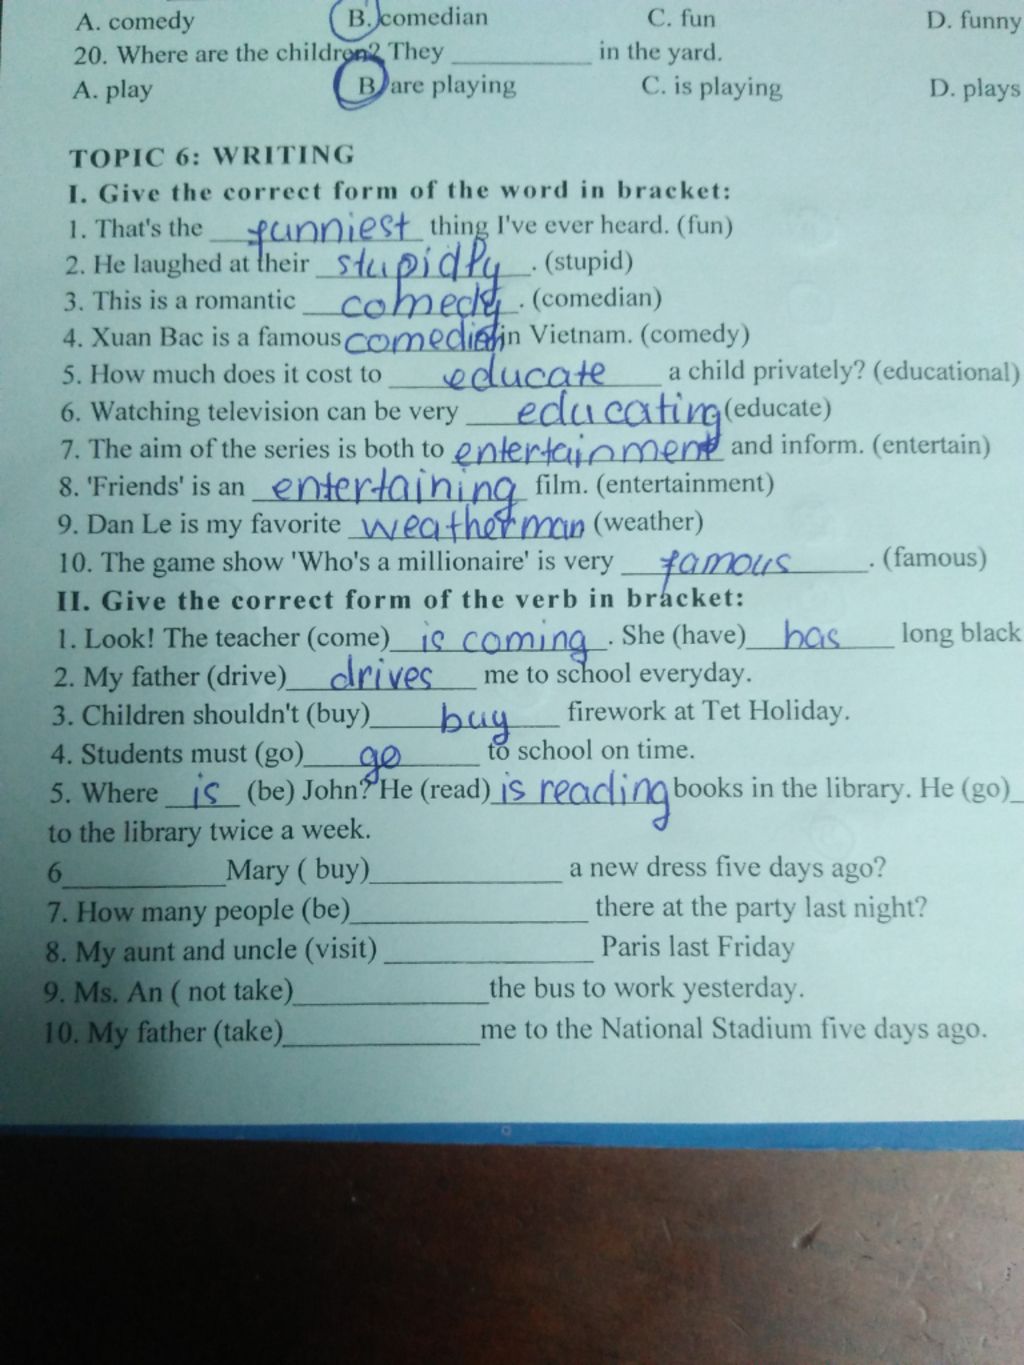 A. comedy B. comedian C. fun D. funny
20. Where are the children? They ____________ in the yard.
A. play B are playing C. is playing D. plays
TOPIC 6: WRITING
I. Give the correct form of the word in bracket:
1. That's the funniest thing I've ever heard. (fun)
2. He laughed at their stupidly. (stupid)
3. This is a romantic comedy. (comedian)
4. Xuan Bac is a famous comedian in Vietnam. (comedy)
5. How much does it cost to educate a child privately? (educational)
6. Watching television can be very educating (educate)
7. The aim of the series is both to entertainment and inform. (entertain)
8. 'Friends' is an entertaining film. (entertainment)
9. Dan Le is my favorite weatherman (weather)
10. The game show 'Who's a millionaire' is very famous. (famous)
II. Give the correct form of the verb in bracket:
1. Look! The teacher (come) is coming. She (have) has long black
2. My father (drive) drives me to school everyday.
3. Children shouldn't (buy) buy firework at Tet Holiday.
4. Students must (go) go to school on time.
5. Where is (be) John? He (read) is reading books in the library. He (go)_
to the library twice a week.
6______________Mary ( buy)________________ a new dress five days ago?
7. How many people (be)____________________ there at the party last night?
8. My aunt and uncle (visit) __________________ Paris last Friday
9. Ms. An ( not take)________________the bus to work yesterday.
10. My father (take)_________________me to the National Stadium five days ago.